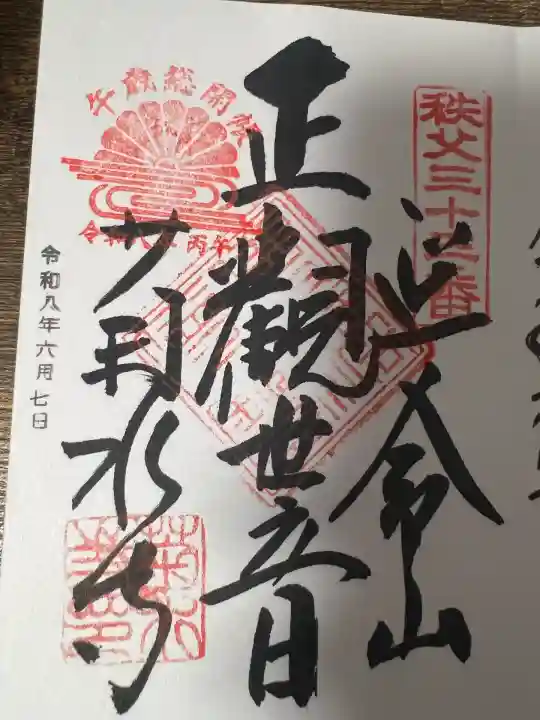 秩父三十三番
延命山
正觀世音
午歳総開帳
令和八年丙午
菊水寺
令和八年六月七日